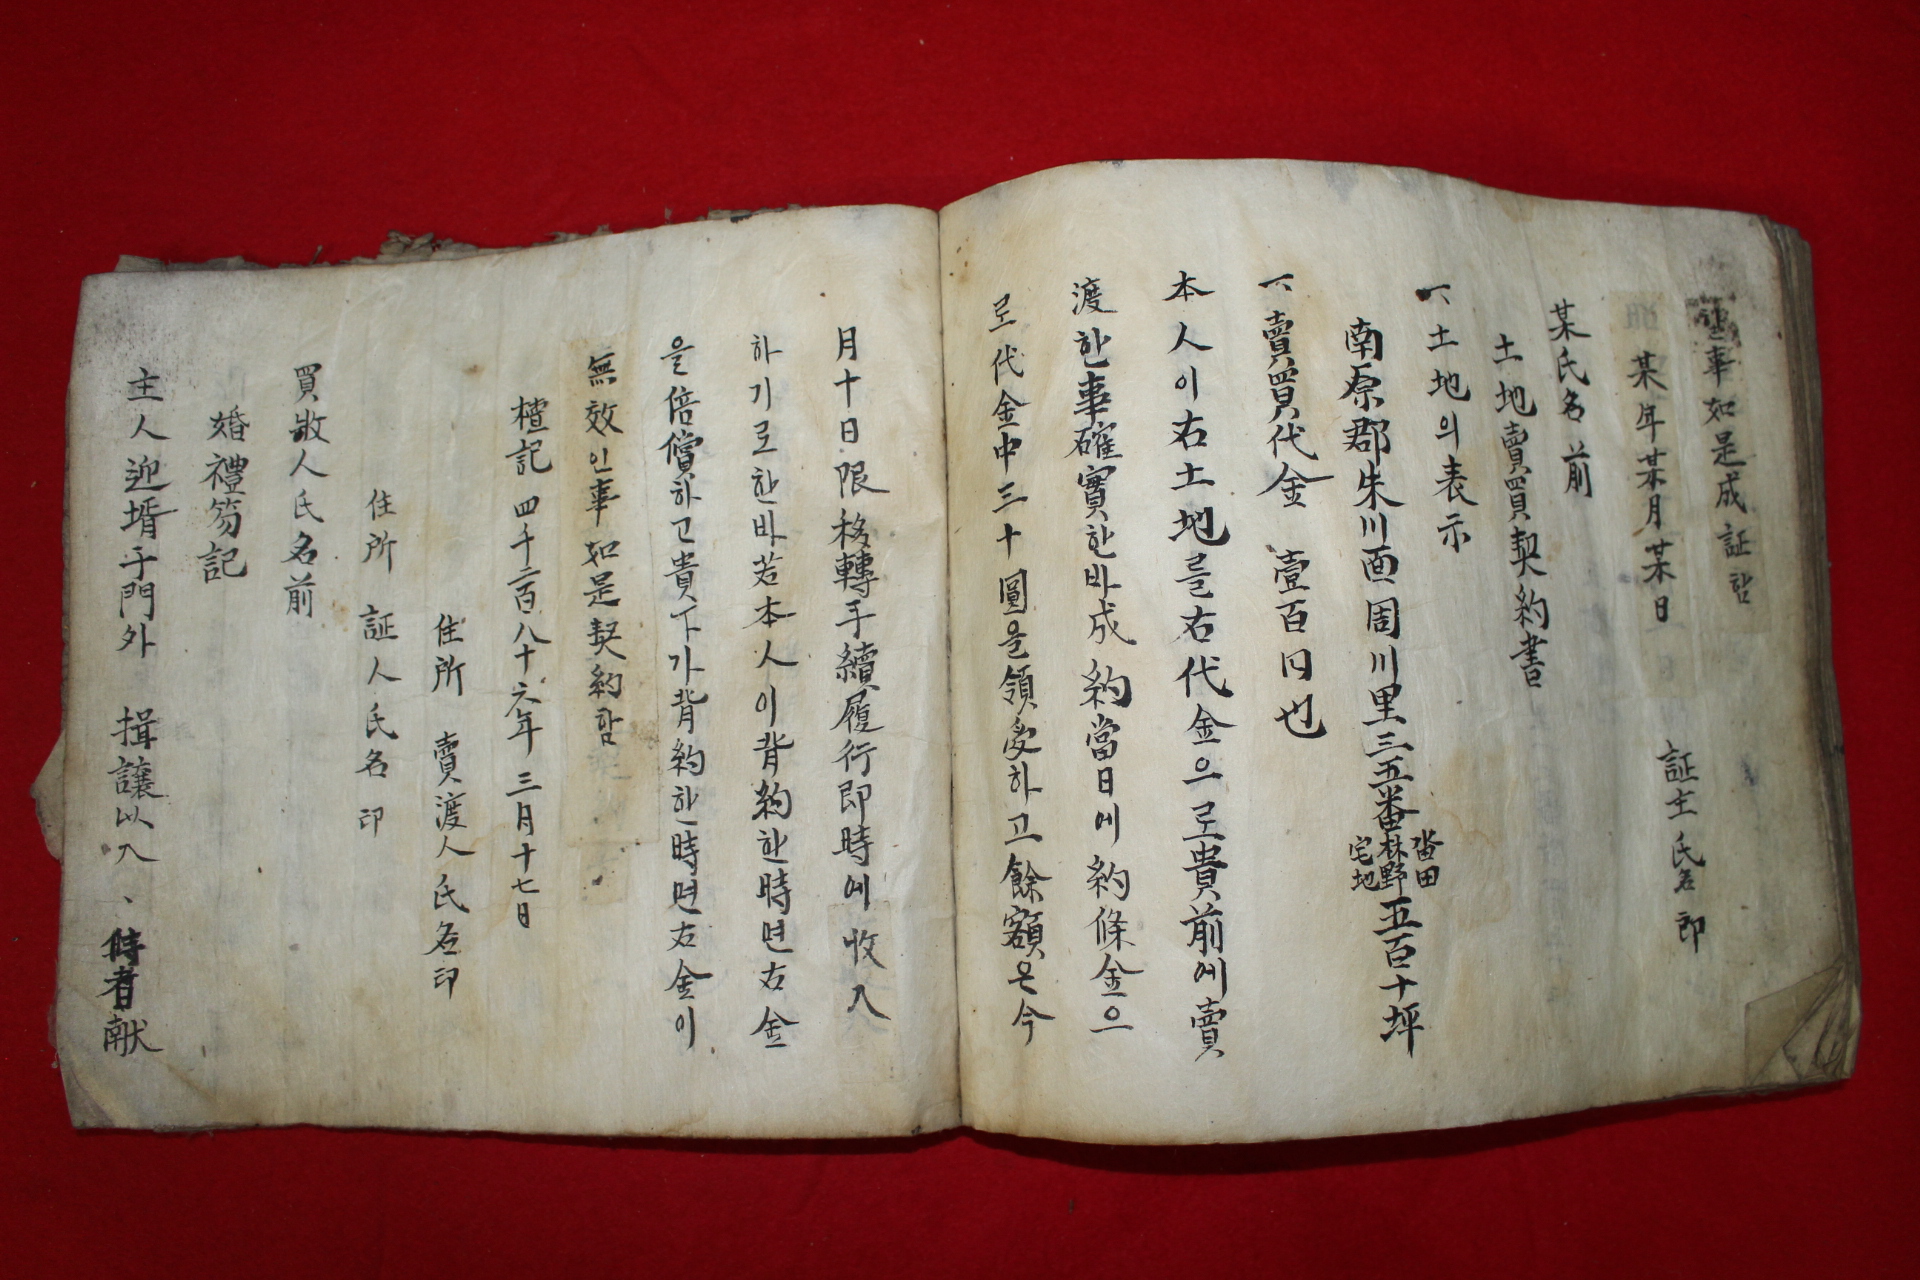 事如是成証함
某年某月某日
証主氏名 印
某氏名前
土地賣買契約書
一、土地의表示
南原郡朱川面周川里三五番 畓田 林野 宅地 五百十坪
一、賣買代金 壹百円也
本人이右土地를右代金으로貴前에賣
渡한事確實한바成約當日에約條金으
로代金中三十圓을領受하고餘額은今
月十日限移轉手續履行即時에收入
하기로한바若本人이背約한時면右金
을倍償하고貴下가背約한時면右金이
無效인事如是契約함
檀記四千二百八十六年三月十七日
住所 賣渡人氏名印
住所 証人氏名印
買收人氏名前
婚禮笏記
主人迎壻于門外 揖讓以入、侍者献